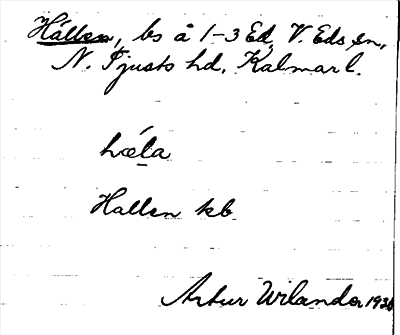 Hällen, bs å 1-3 Ed, V. Eds sn,
N. Tjusts hd, Kalmar l.
hæ´la
Hallen kb
Artur Wilander 1930